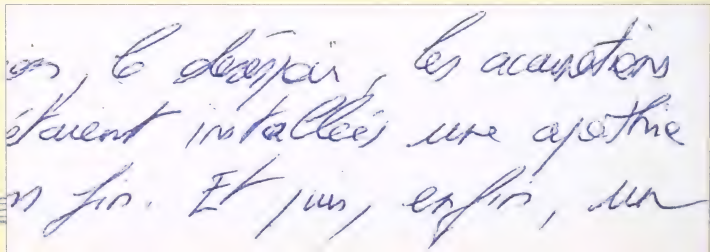 le désespoir, les accusations
étaient installées une apathie
fin. Et puis, enfin, un